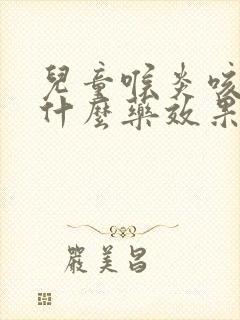 兒童喉炎咳
什麼藥效果
嚴美昌